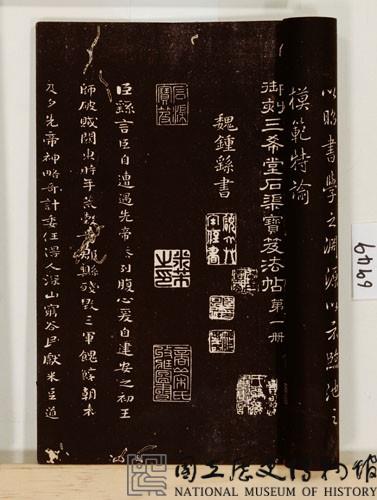 以昭書學之淵源以示臨池之
模範特諭
御刻三希堂石渠寶笈法帖第一冊
魏鍾繇書
石渠寶笈
臣繇言臣自遭遇先帝忝列腹心爰自建安之初王
師破賊關東時年荒穀貴郡縣殘毀三軍餽饟朝不
及夕先帝神略奇計委任得人深山窮谷民獻米豆道
國立歷史博物館
NATIONAL MUSEUM OF HISTORY